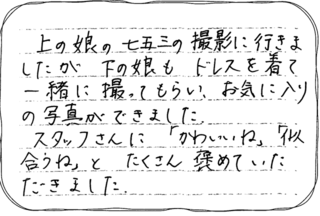 上の娘の七五三の撮影に行きま
したが 下の娘も ドレスを着て
一緒に撮ってもらい、お気に入り
の写真ができました。
スタッフさんに 「かわいいね」「似
合うね」と たくさん 褒めていた
だきました。